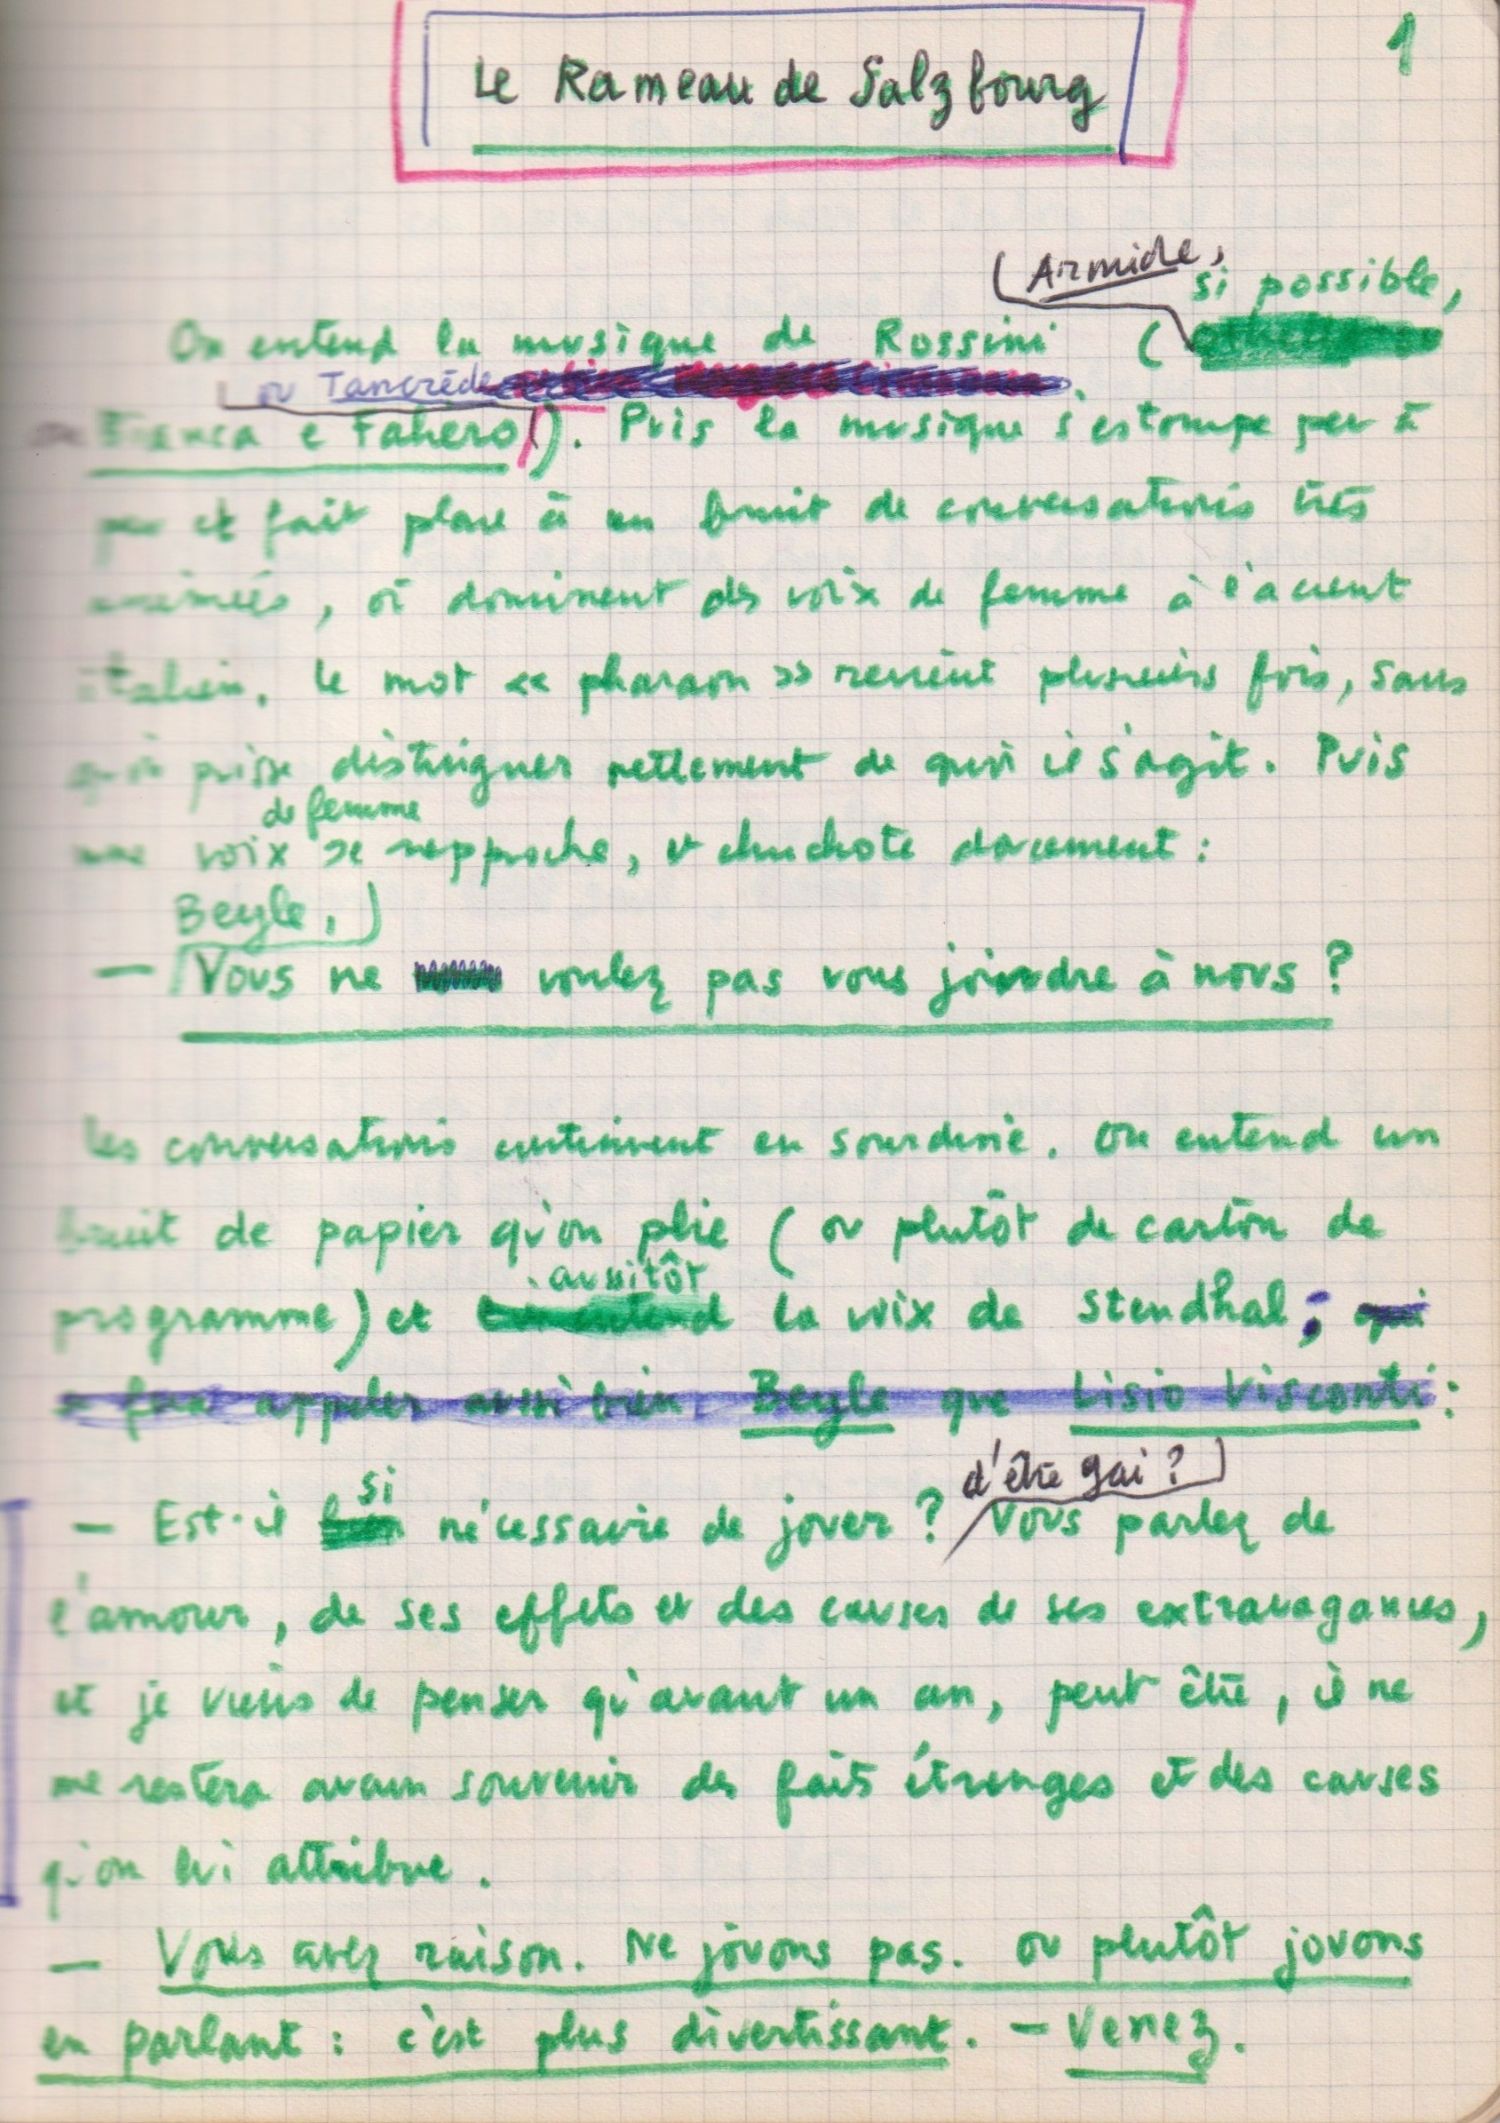 1
Le Rameau de Salzbourg
Armide,
si possible,
On entend la musique de Rossini (
ou Tancrède
Bianca e Faliero). Puis la musique s'estompe peu à
peu et fait place à un bruit de conversations très
animées, où dominent des voix de femme à l'accent
italien. Le mot « pharaon » revient plusieurs fois, sans
qu'on puisse distinguer nettement de quoi il s'agit. Puis
de femme
une voix se rapproche, et chuchote doucement :
Beyle,
— Vous ne voulez pas vous joindre à nous ?
Les conversations continuent en sourdine. On entend un
bruit de papier qu'on plie (ou plutôt de carton de
aussitôt
programme) et la voix de Stendhal ; qui
se fera appeler aussi bien Beyle que Lisio Visconti :
d'être gai ?
si
— Est-il nécessaire de jouer ? Vous parlez de
l'amour, de ses effets et des causes de ses extravagances,
et je viens de penser qu'avant un an, peut être, il ne
me restera aucun souvenir des faits étranges et des causes
qu'on lui attribue.
— Vous avez raison. Ne jouons pas. Ou plutôt jouons
en parlant : c'est plus divertissant. — Venez.